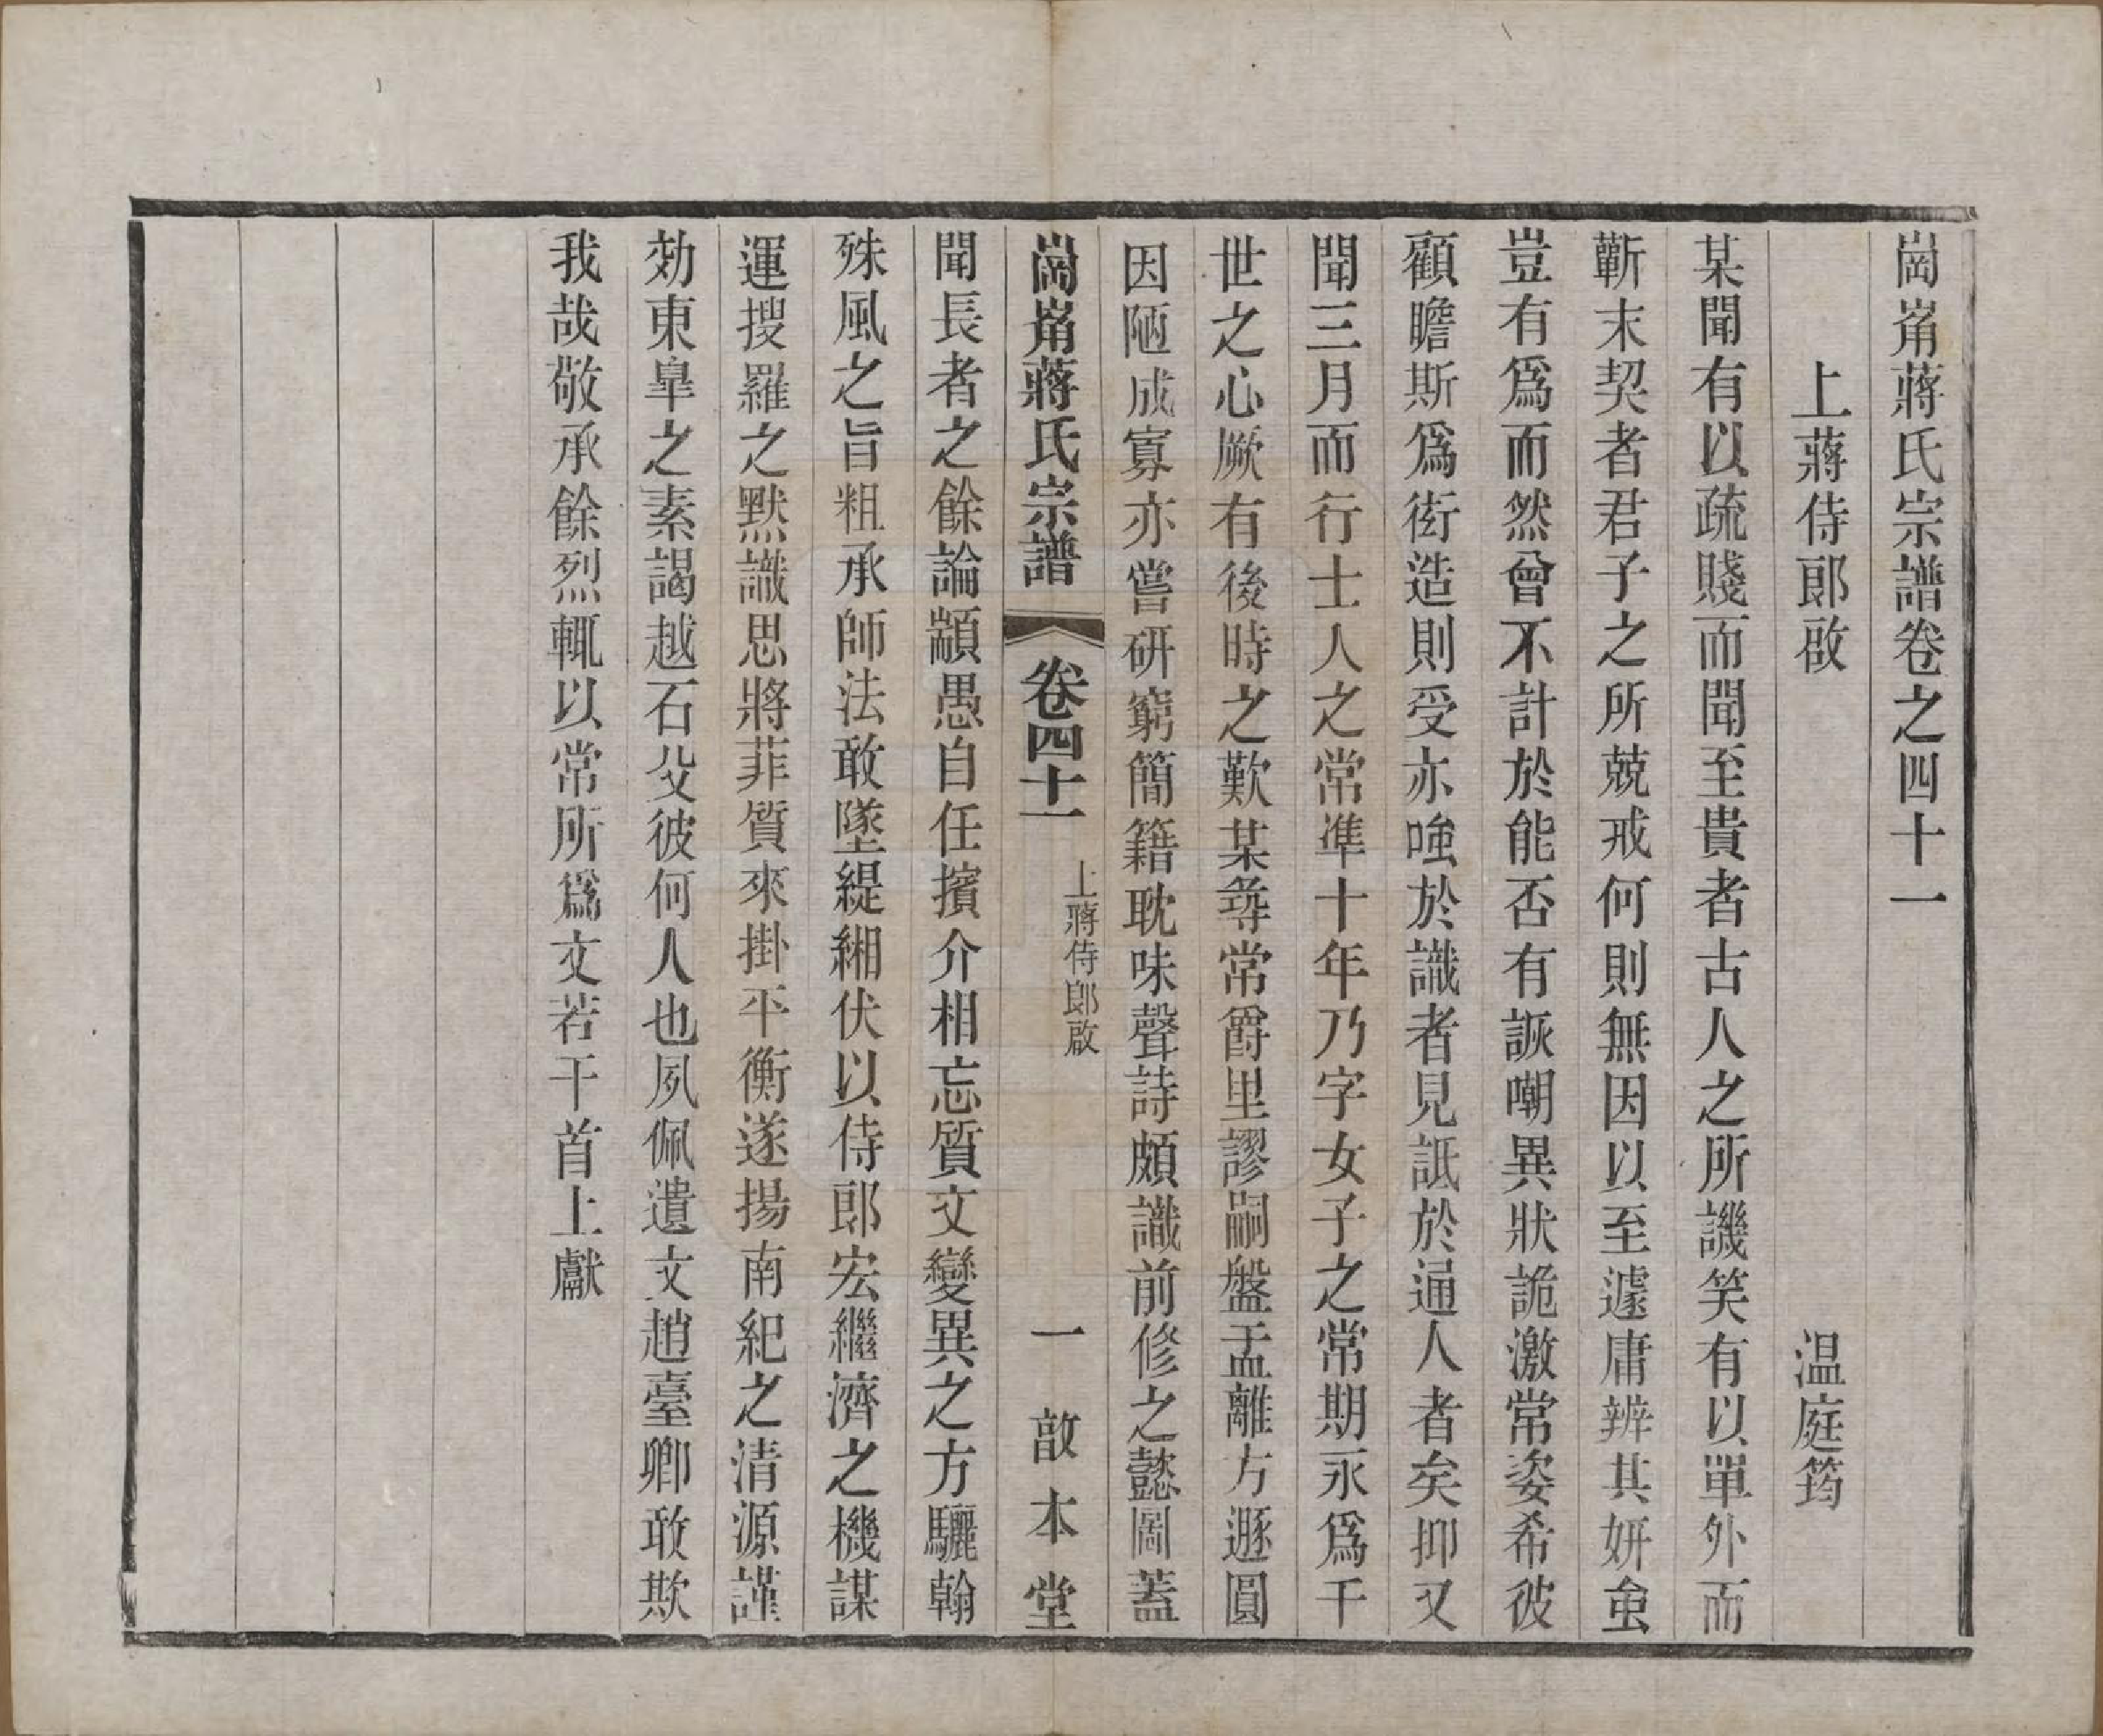 崗崤蔣氏宗譜卷之四十一
上蔣侍郎啟 温庭筠
某聞有以疏賤而聞至貴者古人之所譏笑有以單外而
蘄末契者君子之所兢戒何則無因以至遽庸辨其妍蚩
豈有爲而然曾不計於能否有詼嘲異狀詭激常姿希彼
顧瞻斯爲衒造則受亦嗤於識者見詆於通人者矣抑又
聞三月而行士人之常準十年乃字女子之常期永爲干
世之心厥有後時之歎某尋常爵里謬嗣盤盂離方遯圓
因陋成寡亦嘗研窮簡籍耽味聲詩頗識前修之懿圖蓋
崗崤蔣氏宗譜 卷四十一 上蔣侍郎啟 一 敨本堂
聞長者之餘論顓愚自任擯介相忘質文變異之方驪翰
殊風之旨粗承師法敢墜緹緗伏以侍郎宏繼濟之機謀
運搜羅之默識思將菲質來掛平衡遂揚南紀之清源謹
効東臯之素謁越石父彼何人也夙佩遺文趙臺卿敢欺
我哉敬承餘烈輒以常所爲文若干首上獻